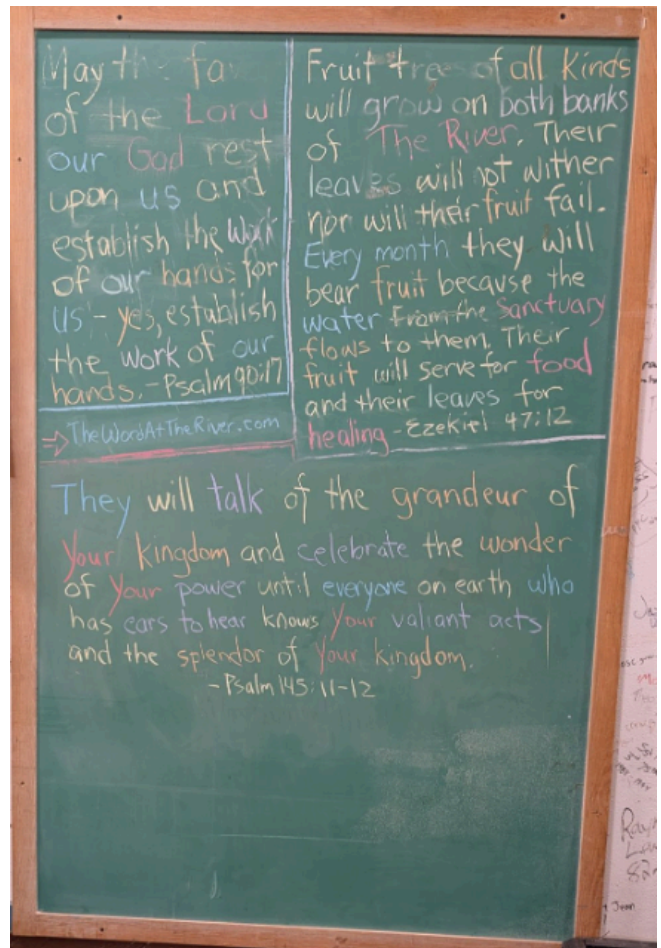 May the fa
of the Lord
our God rest
upon us and
establish the work
of our hands for
us - yes, establish
the work of our
hands. - Psalm 90:17
→ TheWordAtTheRiver.com
Fruit trees of all kinds
will grow on both banks
of The River. Their
leaves will not wither
nor will their fruit fail.
Every month they will
bear fruit because the
water From the Sanctuary
flows to them. Their
fruit will serve for food
and their leaves for
healing - Ezekiel 47:12
They will talk of the grandeur of
Your kingdom and celebrate the wonder
of Your power until everyone on earth who
has ears to hear knows Your valiant acts
and the splendor of Your kingdom.
- Psalm 145:11-12
Jean